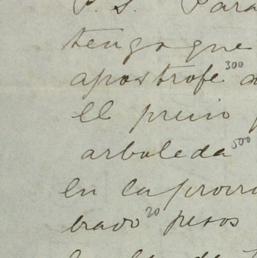 P. S. Para
tengo que
apostrofe 300
el precio
arboleda 500
en la provin
brado 20 pesos